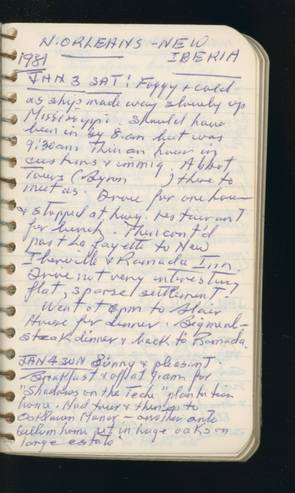 N. ORLEANS - NEW
IBERIA
1981
JAN 3 SAT: Foggy & cold
as ship made way slowly up
Mississippi. Should have
been in by 8 am but was
9:30 am. Then an hour in
customs & immig. Abbot
Tours ( ) there to
meet us. Drove for one hour
& stopped at hwy. restaurant
for lunch. Then cont'd
past Lafayette to New
Iberia & Ramada Inn.
Drive not very interesting
flat, sparse settlement.
Went at 6pm to
House for dinner. Big meal -
steak dinner & back to Ramada.
JAN 4 SUN Sunny & pleasant.
Breakfast & off at 9 am for
"Shadows on the Teche" plantation
home. Had tour & then to
Oaklawn Manor - another ante
bellum home set in huge oaks on
large estate